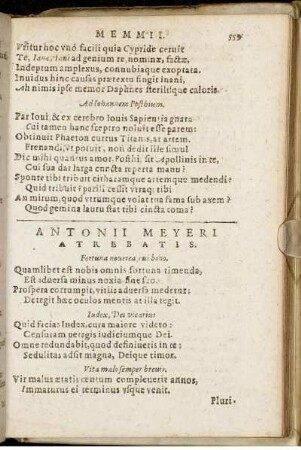 MEMMII. 559
Vritur hoc vno facili quia Cypride cernit
Te, Iane, Iani ad genium re, nomine, factæ,
Indeptum amplexus, connubiaque exoptata.
Inuidus hinc causas prætexm fingit inani,
Ah nimis ipse memor Daphnes sterilique caloris.
Ad Iohannem Posthium.
Par Ioui, & ex cerebro Iouis Sapientia gnata
Cui tamen hanc sceptro noluit esse parem:
Obtinuit Phaeton currus Titanis, at artem.
Frenandi, vt potuit, non dedit ille simul
Dic mihi quantus amor, Posthi, sit Apollinis in te,
Cui sua dat larga cuncta reperta manu?
Sponte tibi tribuit citharamque artemque medendi?
Quid tribuit? parili cessit vtraque tibi
An mirum, quod vtrumque volat tua fama sub axem?
Quod gemina lauru stat tibi cincta coma?
ANTONII MEYERI
ATREBATIS.
Fortuna nouerca, bona.
Quamlibet est nobis omnis fortuna timenda,
Est aduersa minus noxia
Prospera corrumpit, vitiis aduersa medetur:
Detegit hæc oculos mentis at illa tegit.
Index, Dei vicarius
Quid facias Index, cura maiore videto:
Censuram neragis iudiciumque Dei.
Omne redundabit, quod definiueris in te:
Sedulitas adsit magna, Deique timor.
Vita malo semper breuis.
Vir malus ætatis centum compleuerit annos,
Immaturus ei terminus vsque venit.
Pluri-